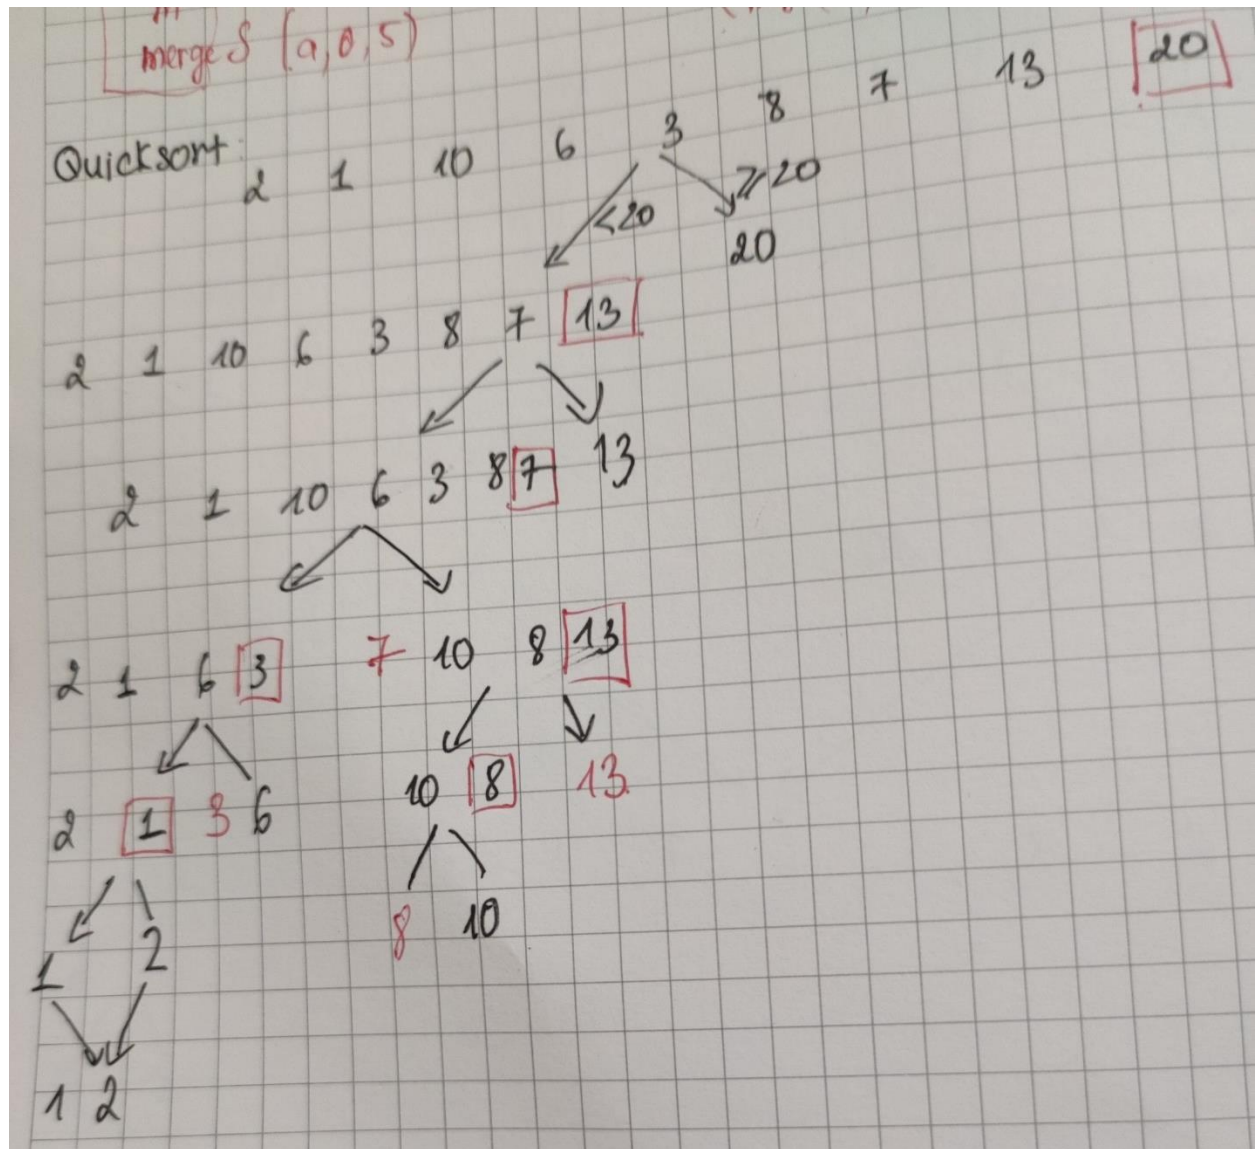 mergeS (a,0,5)
Quicksort: 2 1 10 6 3 8 7 13 20
<20 ≥20
20
2 1 10 6 3 8 7 13
2 1 10 6 3 8 7 13
2 1 6 3 7 10 8 13
2 1 3 6 10 8 13
1 2 8 10
1 2